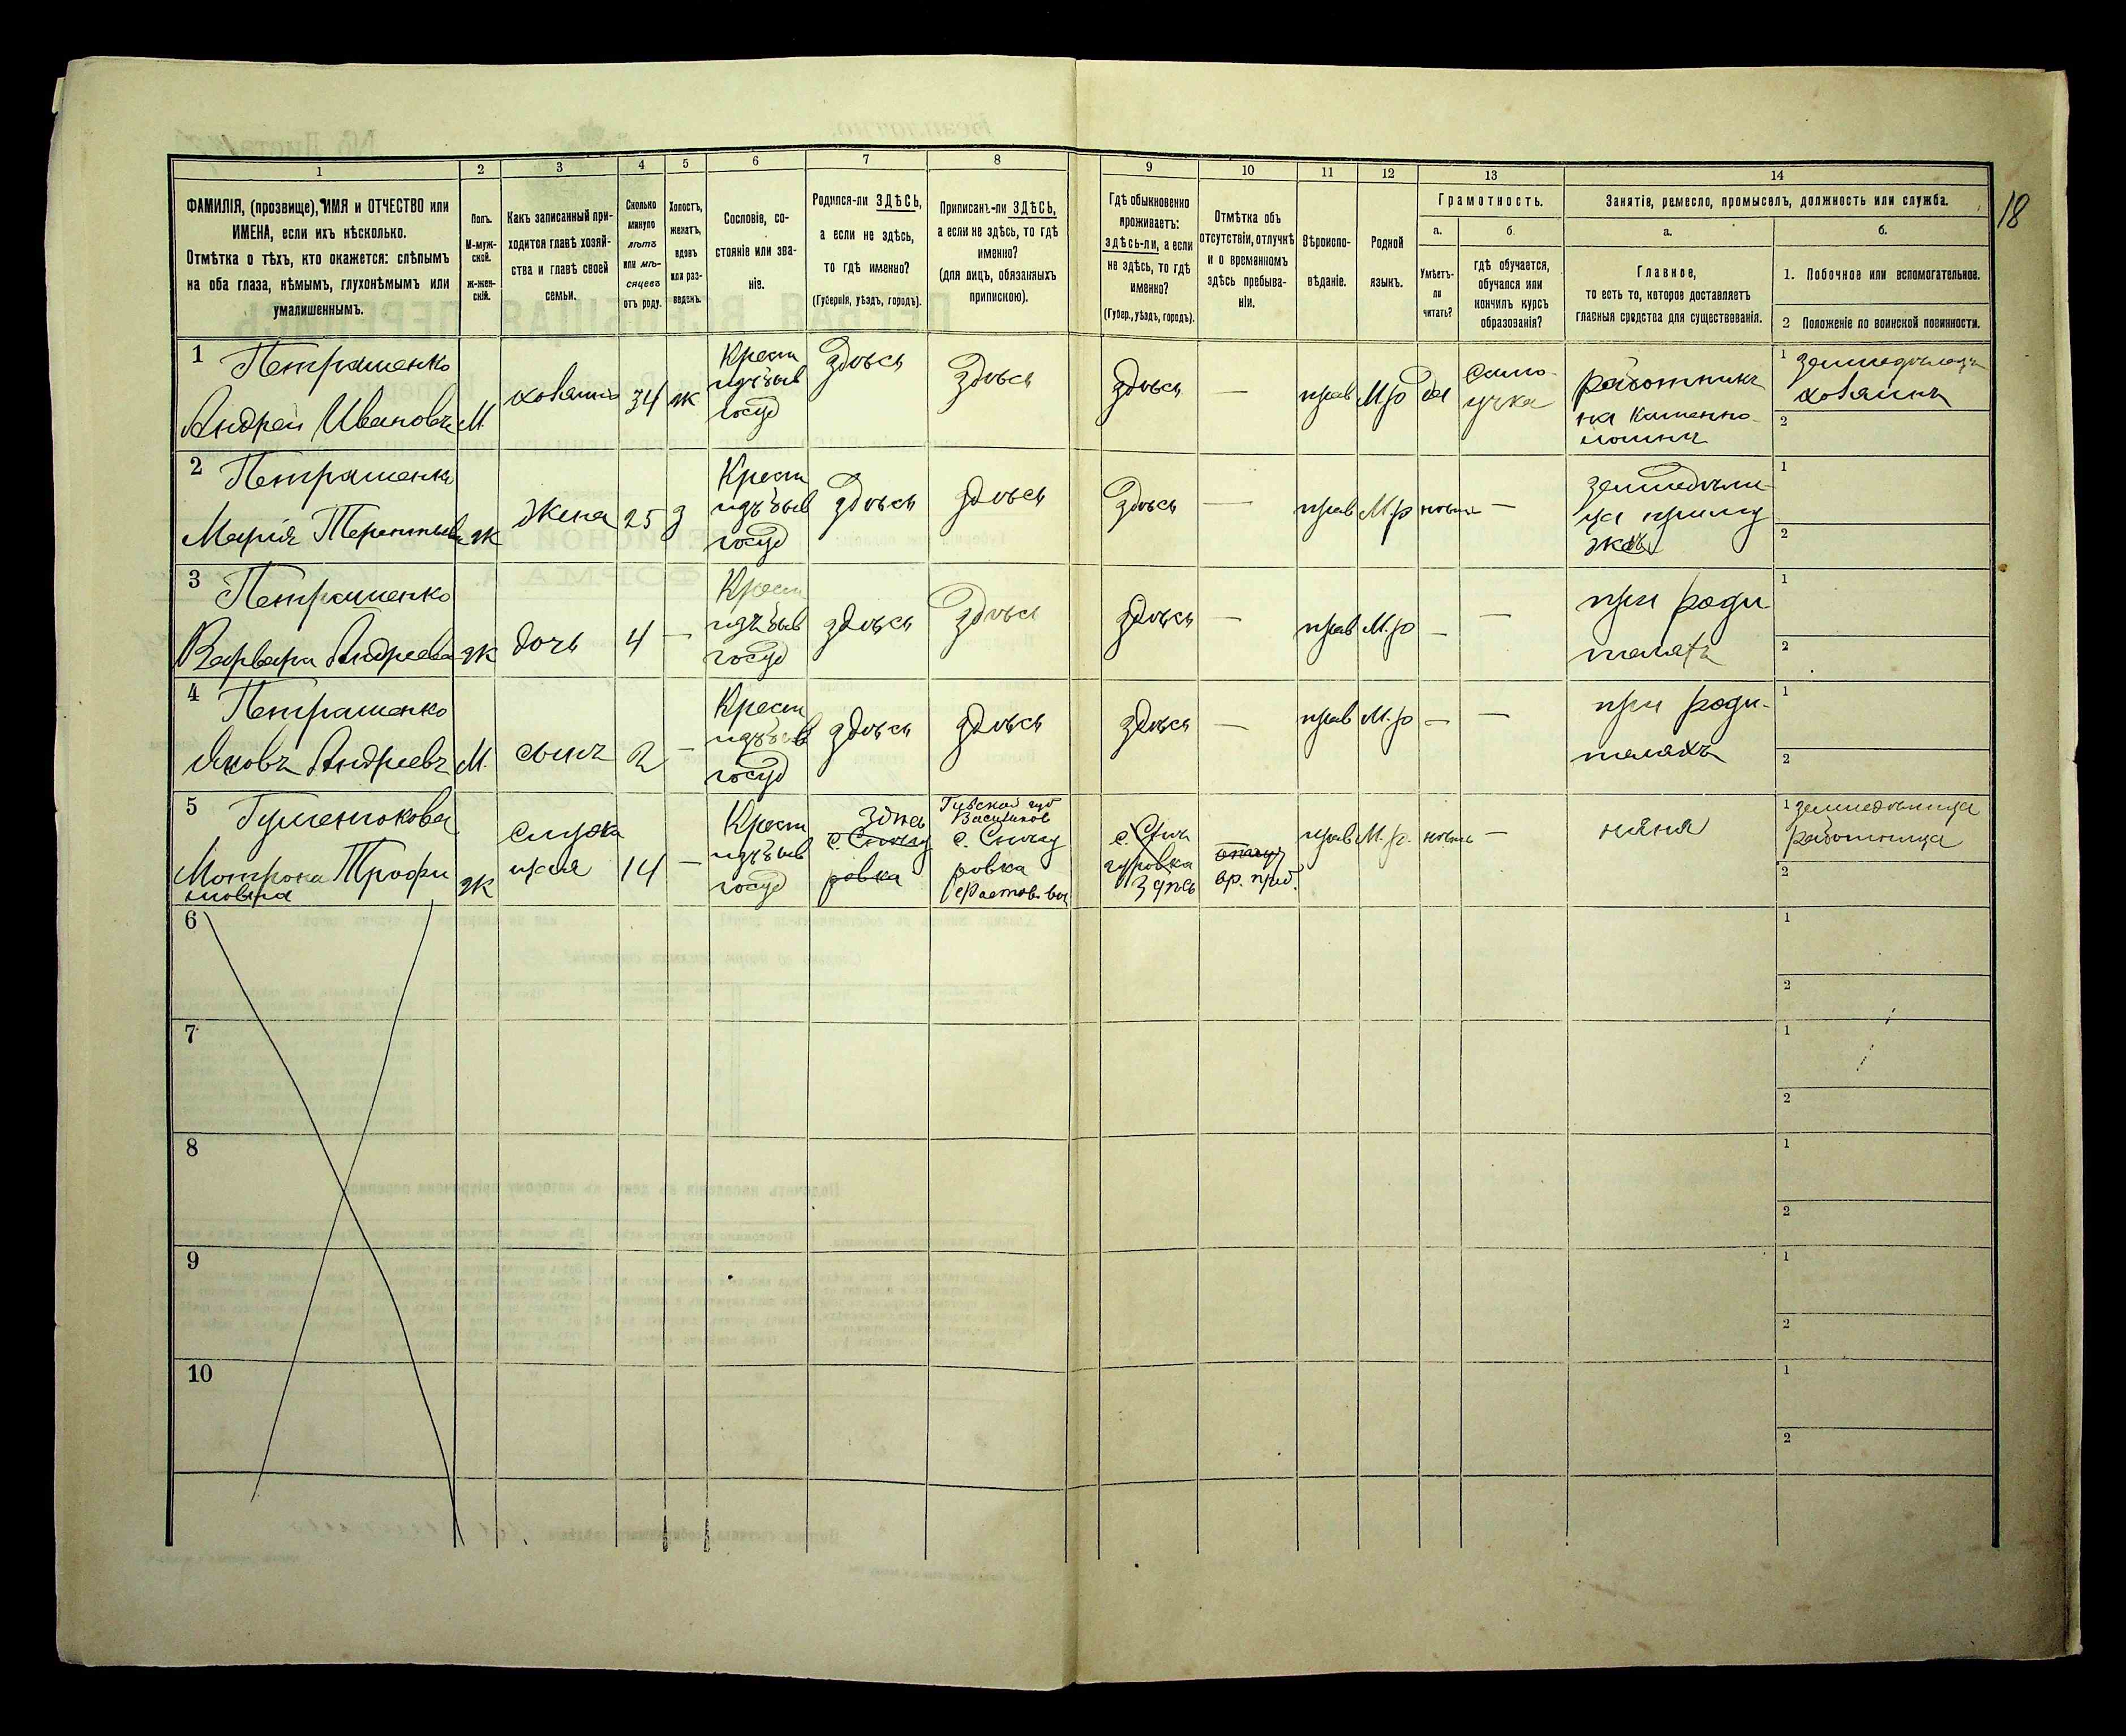 18
1 2 3 4 5 6 7 8 9 10 11 12 13 14
ФАМИЛІЯ, (прозвище), ИМЯ и ОТЧЕСТВО или
ИМЕНА, если ихъ нѣсколько.
Отмѣтка о тѣхъ, кто окажется: слѣпымъ
на оба глаза, нѣмымъ, глухонѣмымъ или
умалишеннымъ.
Полъ.
М-муж-
ской.
Ж-жен-
скій.
Какъ записанный при-
ходится главѣ хозяй-
ства и главѣ своей
семьи.
Сколько
минуло
лѣтъ
или мѣ-
сяцевъ
отъ роду.
Холостъ,
женатъ,
вдовъ
или раз-
веденъ.
Сословіе, со-
стояніе или зва-
ніе.
Родился-ли ЗДѢСЬ,
а если не здѣсь,
то гдѣ именно?
(Губернія, уѣздъ, городъ).
Приписанъ-ли ЗДѢСЬ,
а если не здѣсь, то гдѣ
именно?
(для лицъ, обязанныхъ
припискою).
Гдѣ обыкновенно
проживаетъ:
здѣсь-ли, а если
не здѣсь, то гдѣ
именно?
(Губер., уѣздъ, городъ).
Отмѣтка объ
отсутствіи, отлучкѣ
и о временномъ
здѣсь пребыва-
ніи.
Вѣроиспо-
вѣданіе.
Родной
языкъ.
Грамотность.
а.
Умѣетъ-
ли
читать?
б.
гдѣ обучается,
обучался или
кончилъ курсъ
образованія?
Занятіе, ремесло, промыселъ, должность или служба.
а.
Главное,
то есть то, которое доставляетъ
главныя средства для существованія.
б.
1. Побочное или вспомогательное.
2 Положеніе по воинской повинности.
1 Петрашенко
Андрей Ивановъ
М.
хозяинъ
34
ж
Крест
изъ быв
госуд
здѣсь
здѣсь
здѣсь
—
прав
М.р
да
само-
учка
работникъ
на каменно-
ломнѣ
1 земледѣлецъ
хозяинъ
2
2 Петрашенко
Марія Терентьева
ж
жена
25
з
Крест
изъ быв
госуд
здѣсь
здѣсь
здѣсь
—
прав
М.р
нѣтъ
—
земледѣли-
ца при му
жѣ
1
2
3 Петрашенко
Варвара Андреева
ж
дочь
4
—
Крест
изъ быв
госуд
здѣсь
здѣсь
здѣсь
—
прав
М.р
—
—
при роди
теляхъ
1
2
4 Петрашенко
Яковъ Андреевъ
М.
сынъ
2
—
Крест
изъ быв
госуд
здѣсь
здѣсь
здѣсь
—
прав
М.р
—
—
при роди-
теляхъ
1
2
5
Мотрона Трофи
мовна
ж
14
—
Крест
изъ быв
госуд
здѣсь
ровка
Василиков
ровка
здѣсь
вр. преб.
прав
М.р.
нѣтъ
—
няня
1
работница
2
6
1
2
7
1
2
8
1
2
9
1
2
10
1
2